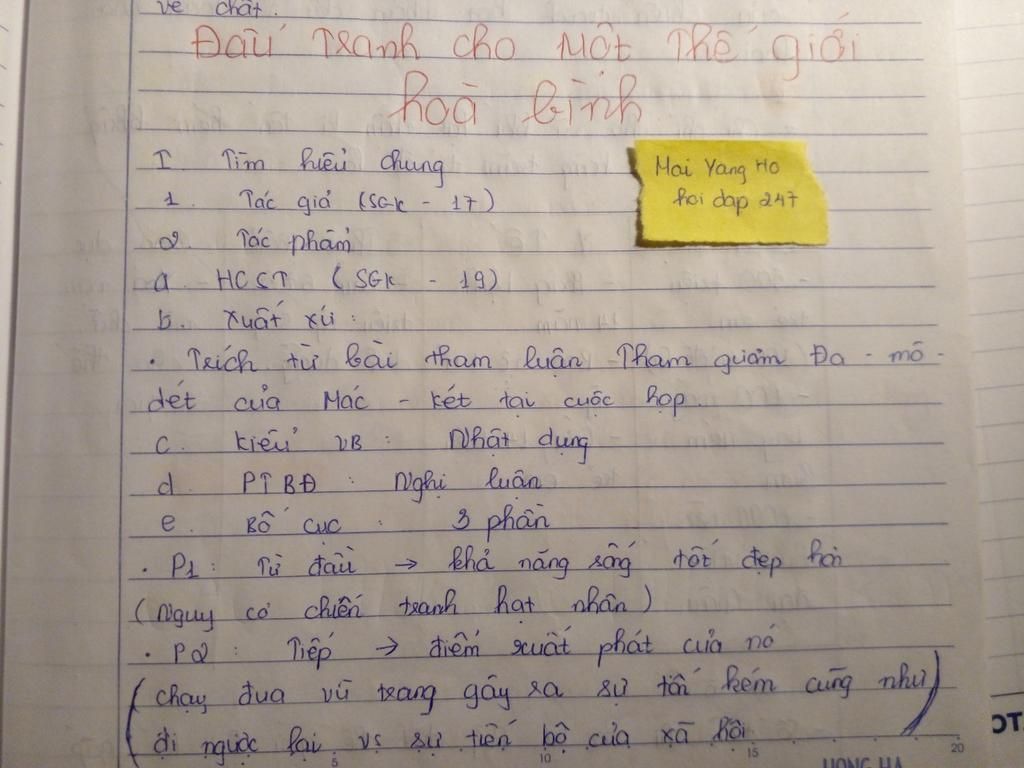 về chất.
Đấu tranh cho một thế giới
hoà bình
I. Tìm hiểu chung
Mai Yang Ho
hoi dap 247
1. Tác giả (SGK - 17)
2. Tác phẩm
a. HCST (SGK - 19)
b. Xuất xứ:
. Trích từ bài tham luận Tham gươm Đa - mô -
dét của Mác - két tại cuộc họp.
c. Kiểu VB: Nhật dụng
d. PTBĐ: Nghị luận
e. Bố cục: 3 phần
. P1: Từ đầu → khả năng sống tốt đẹp hơn
(Nguy cơ chiến tranh hạt nhân)
. P2: Tiếp → điểm xuất phát của nó
(chạy đua vũ trang gây ra sự tốn kém cũng như)
đi ngược lại vs sự tiến bộ của xã hội
5 10 15 20
HONG HA